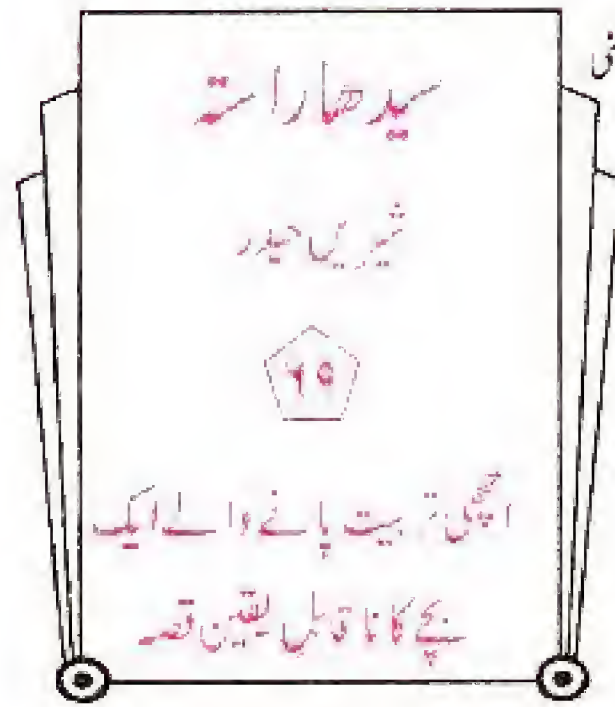 سیدھا راستہ
شیریں حیدر
۶۹
اچھی تربیت پانے والے ایک
بچے کا ناقابل یقین قصہ